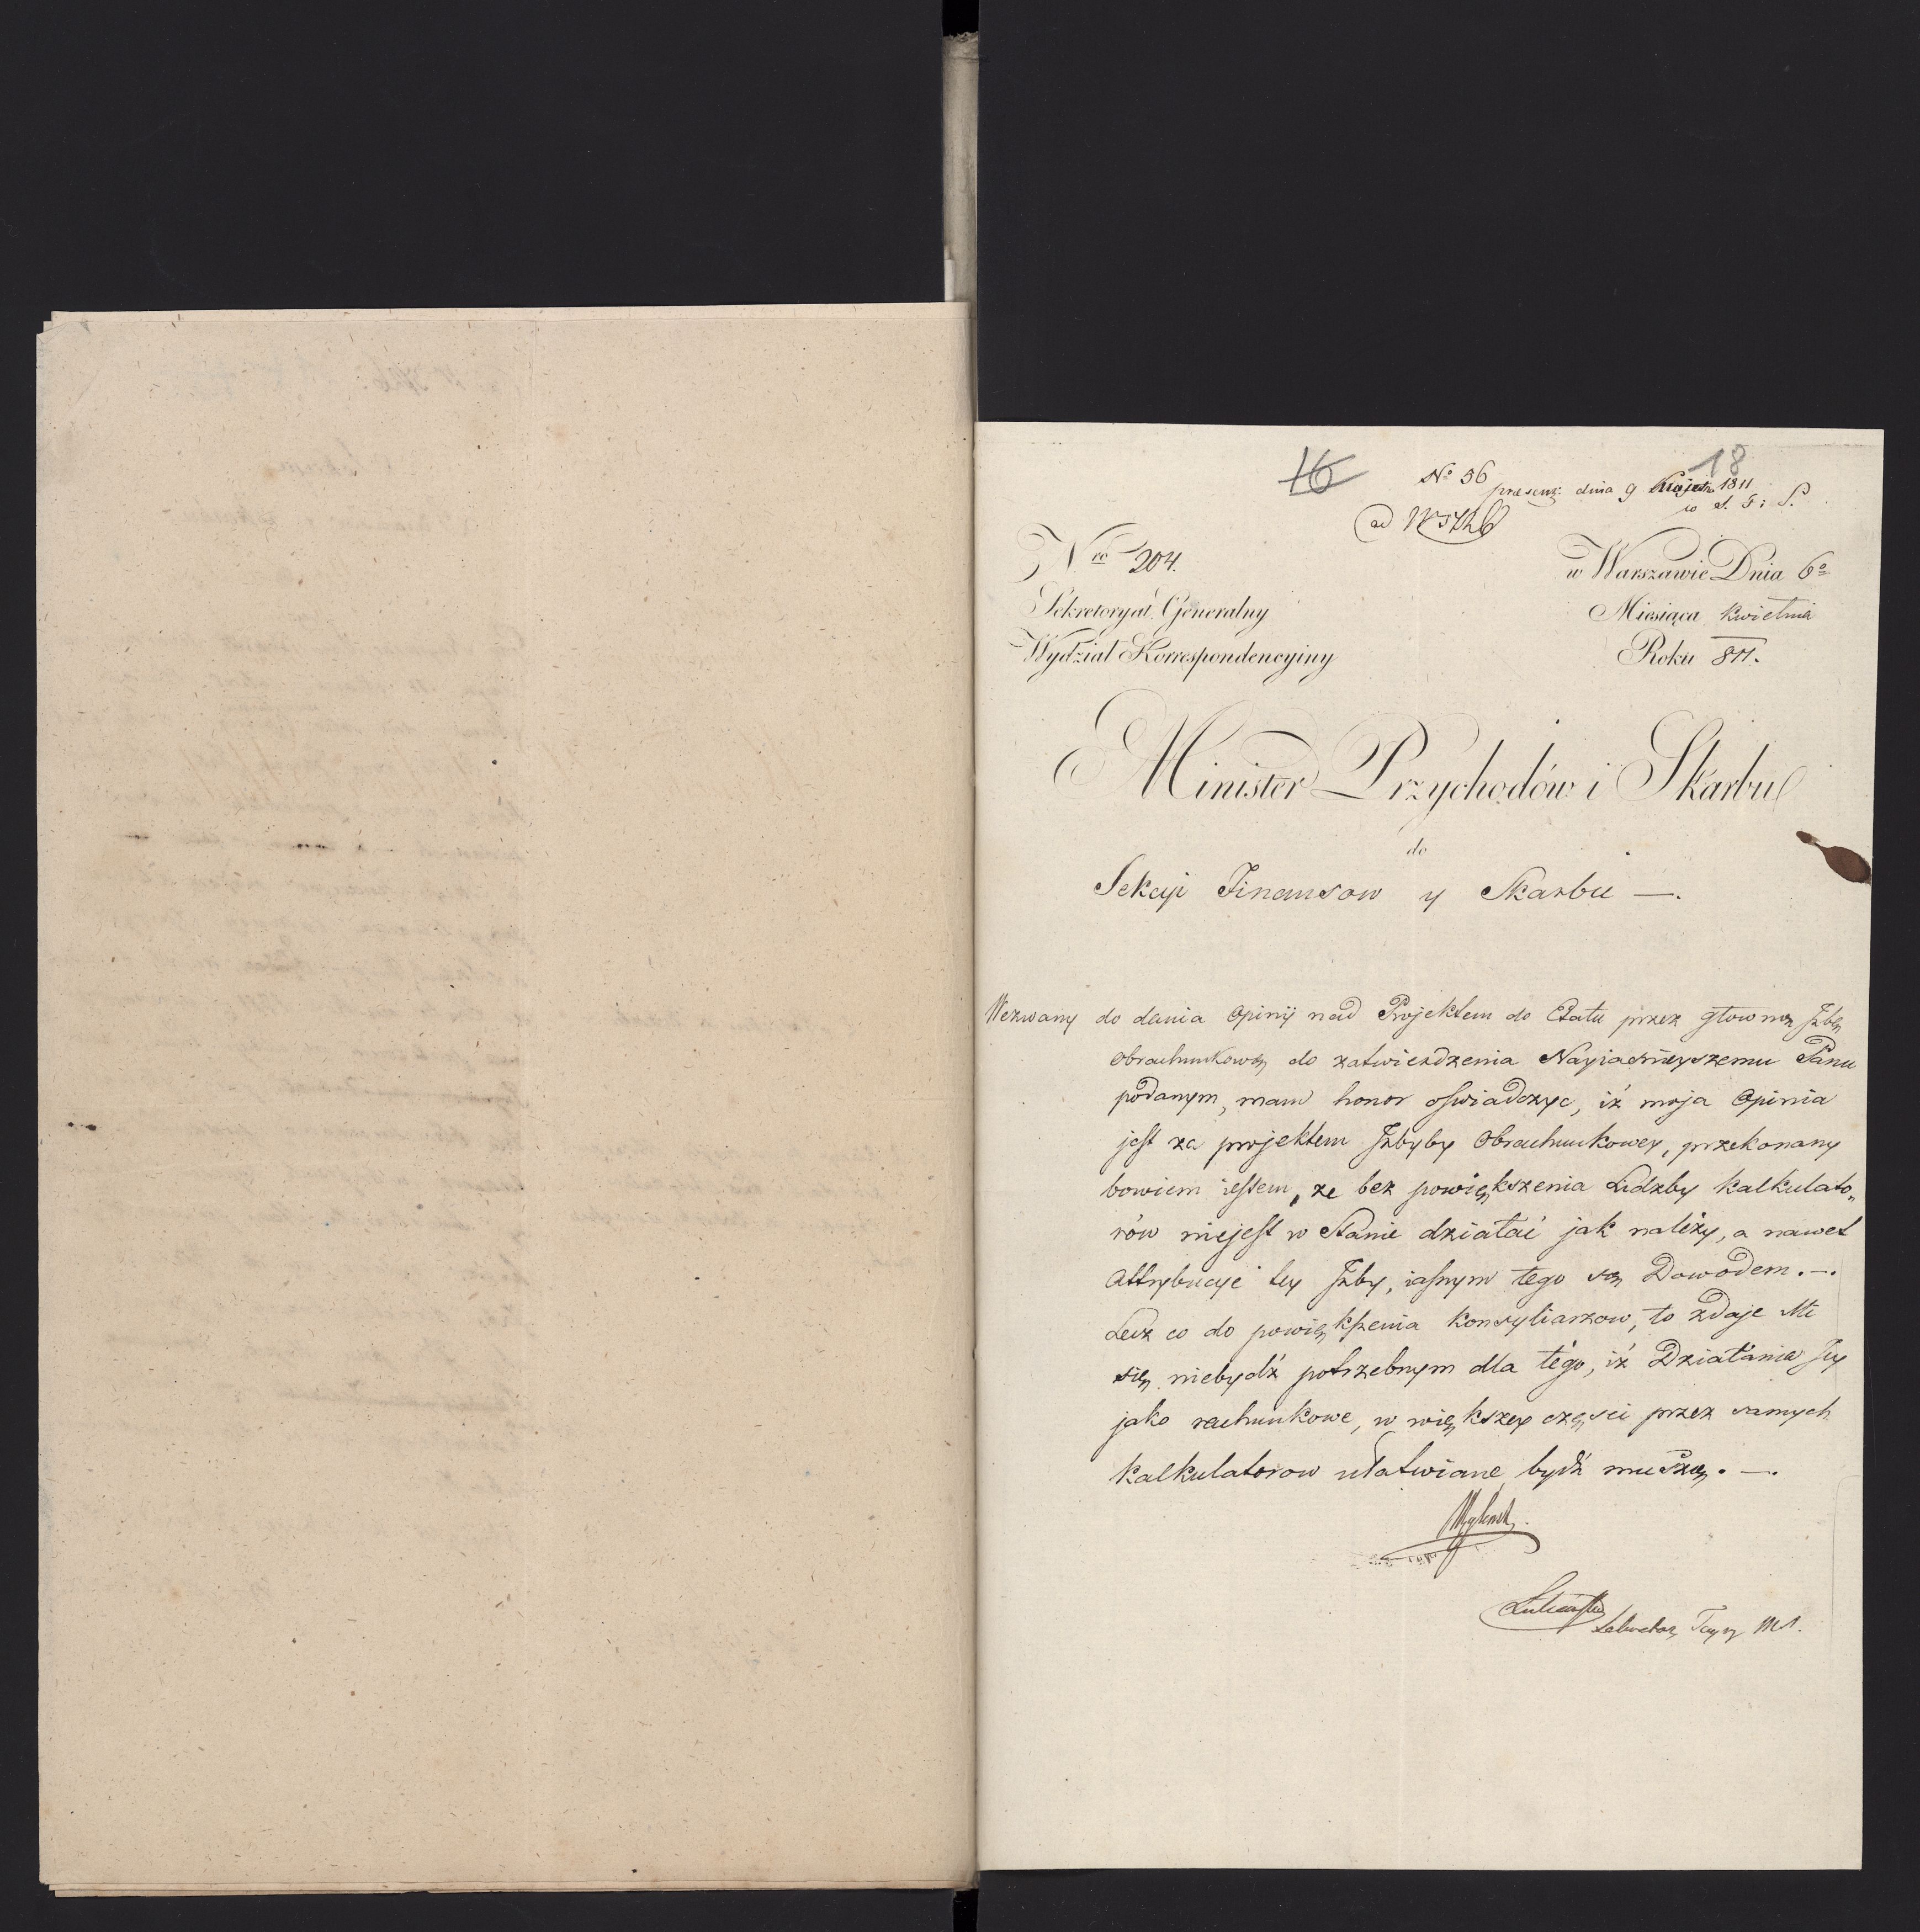 16
18
№ 56
praesent: dnia 9 kwietn 1811
w S. F: i S.
ad
Nro 204.
w Warszawie Dnia 6º
Sekretoryat Generalny
Miesiąca kwietnia
Wydział Korrespondencyiny
Roku 811.
Minister Przychodów i Skarbu
do
Sekcyi Finansow y Skarbu —.
Wezwany do dania Opinij nad Projektem do Etatu przez głowną Jzbę
Obrachunkową do zatwierdzenia Nayiasnieyszemu Panu
podanym, mam honor oswiadczyc, iż moja Opinia
jest za projektem Jzbyby Obrachunkowey, przekonany
bowiem iestem, że bez powiększenia Lidzby kalkulato„
rów niejest w Stanie działać jak należy, a nawet
Attrybucye tey Jzby, iasnym tego są Dowodem. —.
Lecz co do powiększenia Konsyliarzow, to zdaje Mi
się niebydź potrzebnym dla tego, iż Działania Jey
jako rachunkowe, w większey części przez samych
kalkulatorow ułatwiane bydź muszą. —.
Sekretarz M S.